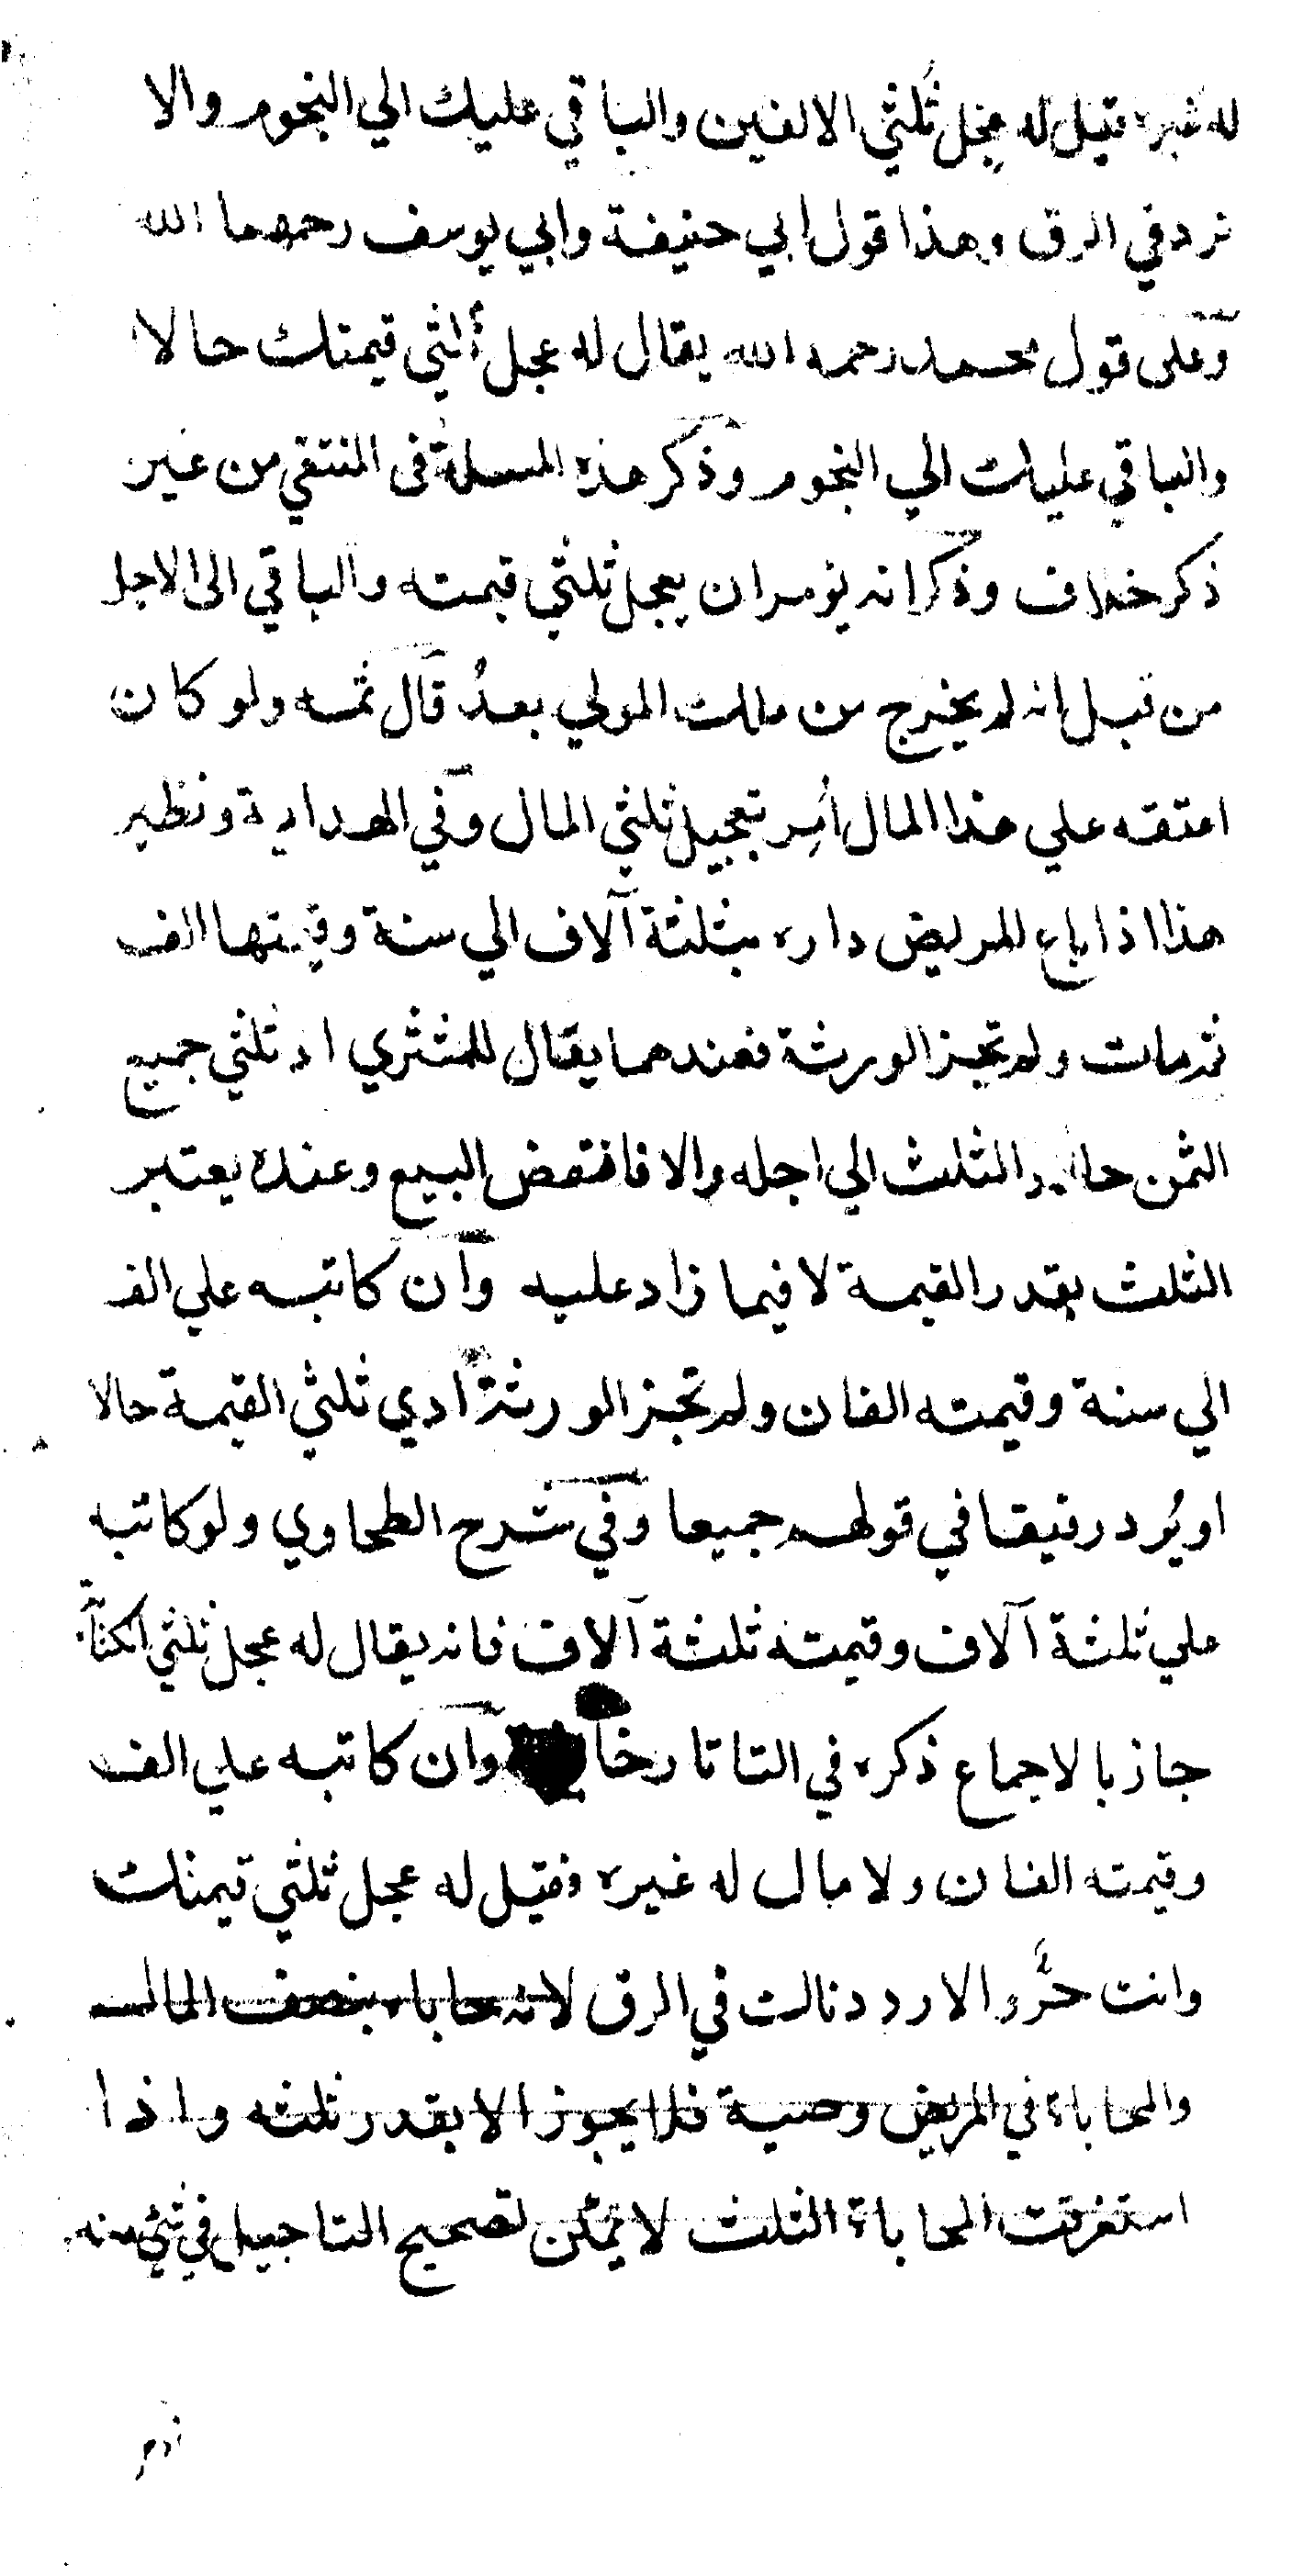 له غيره قيل له عجل ثلثي الالفين والباقي عليك الي النجوم والا
ترد في الرق وهذا قول ابي حنيفة وابي يوسف رحمهما الله
وعلى قول محمد رحمه الله يقال له عجل ثلثي قيمتك حالا
والباقي عليك الي النجوم وذكر هذه المسلة في المنتقي من غير
ذكر خلاف وذكر انه يؤمر ان يعجل ثلثي قيمته والباقي الى الاجل
من قبل انه لم يخرج من ملك المولي بعدُ قال ثمه ولو كان
اعتقه علي هذا المال اُمر بتعجيل ثلثي المال وفي الهداية ونظير
هذا اذا باع المريض داره بثلثة آلاف الي سنة وقيمتها الف
ثم مات ولم تجز الورثة فعندهما يقال للمشتري اد ثلثي جميع
الثمن حالا والثلث الي اجله والا فانقض البيع وعنده يعتبر
الثلث بقدر القيمة لا فيما زاد عليه وان كاتبه علي الف
الي سنة وقيمته الفان ولم تجز الورثة ادي ثلثي القيمة حالا
او يُرد رقيقا في قولهم جميعا وفي شرح الطحاوي ولو كاتبه
علي ثلثة آلاف وقيمته ثلثة آلاف فانه يقال له عجل ثلثي الكتابة
جاز بالاجماع ذكره في التاتارخا وان كاتبه علي الف
وقيمته الفان ولا مال له غيره فقيل له عجل ثلثي قيمتك
وانت حُرّ والا رددناك في الرق لانه حاباه بنصف المال
والمحاباة في المريض وصية فلا يجوز الا بقدر ثلثه واذا
استغرقت المحاباة الثلث لا يمكن تصحيح التاجيل في شيء منه